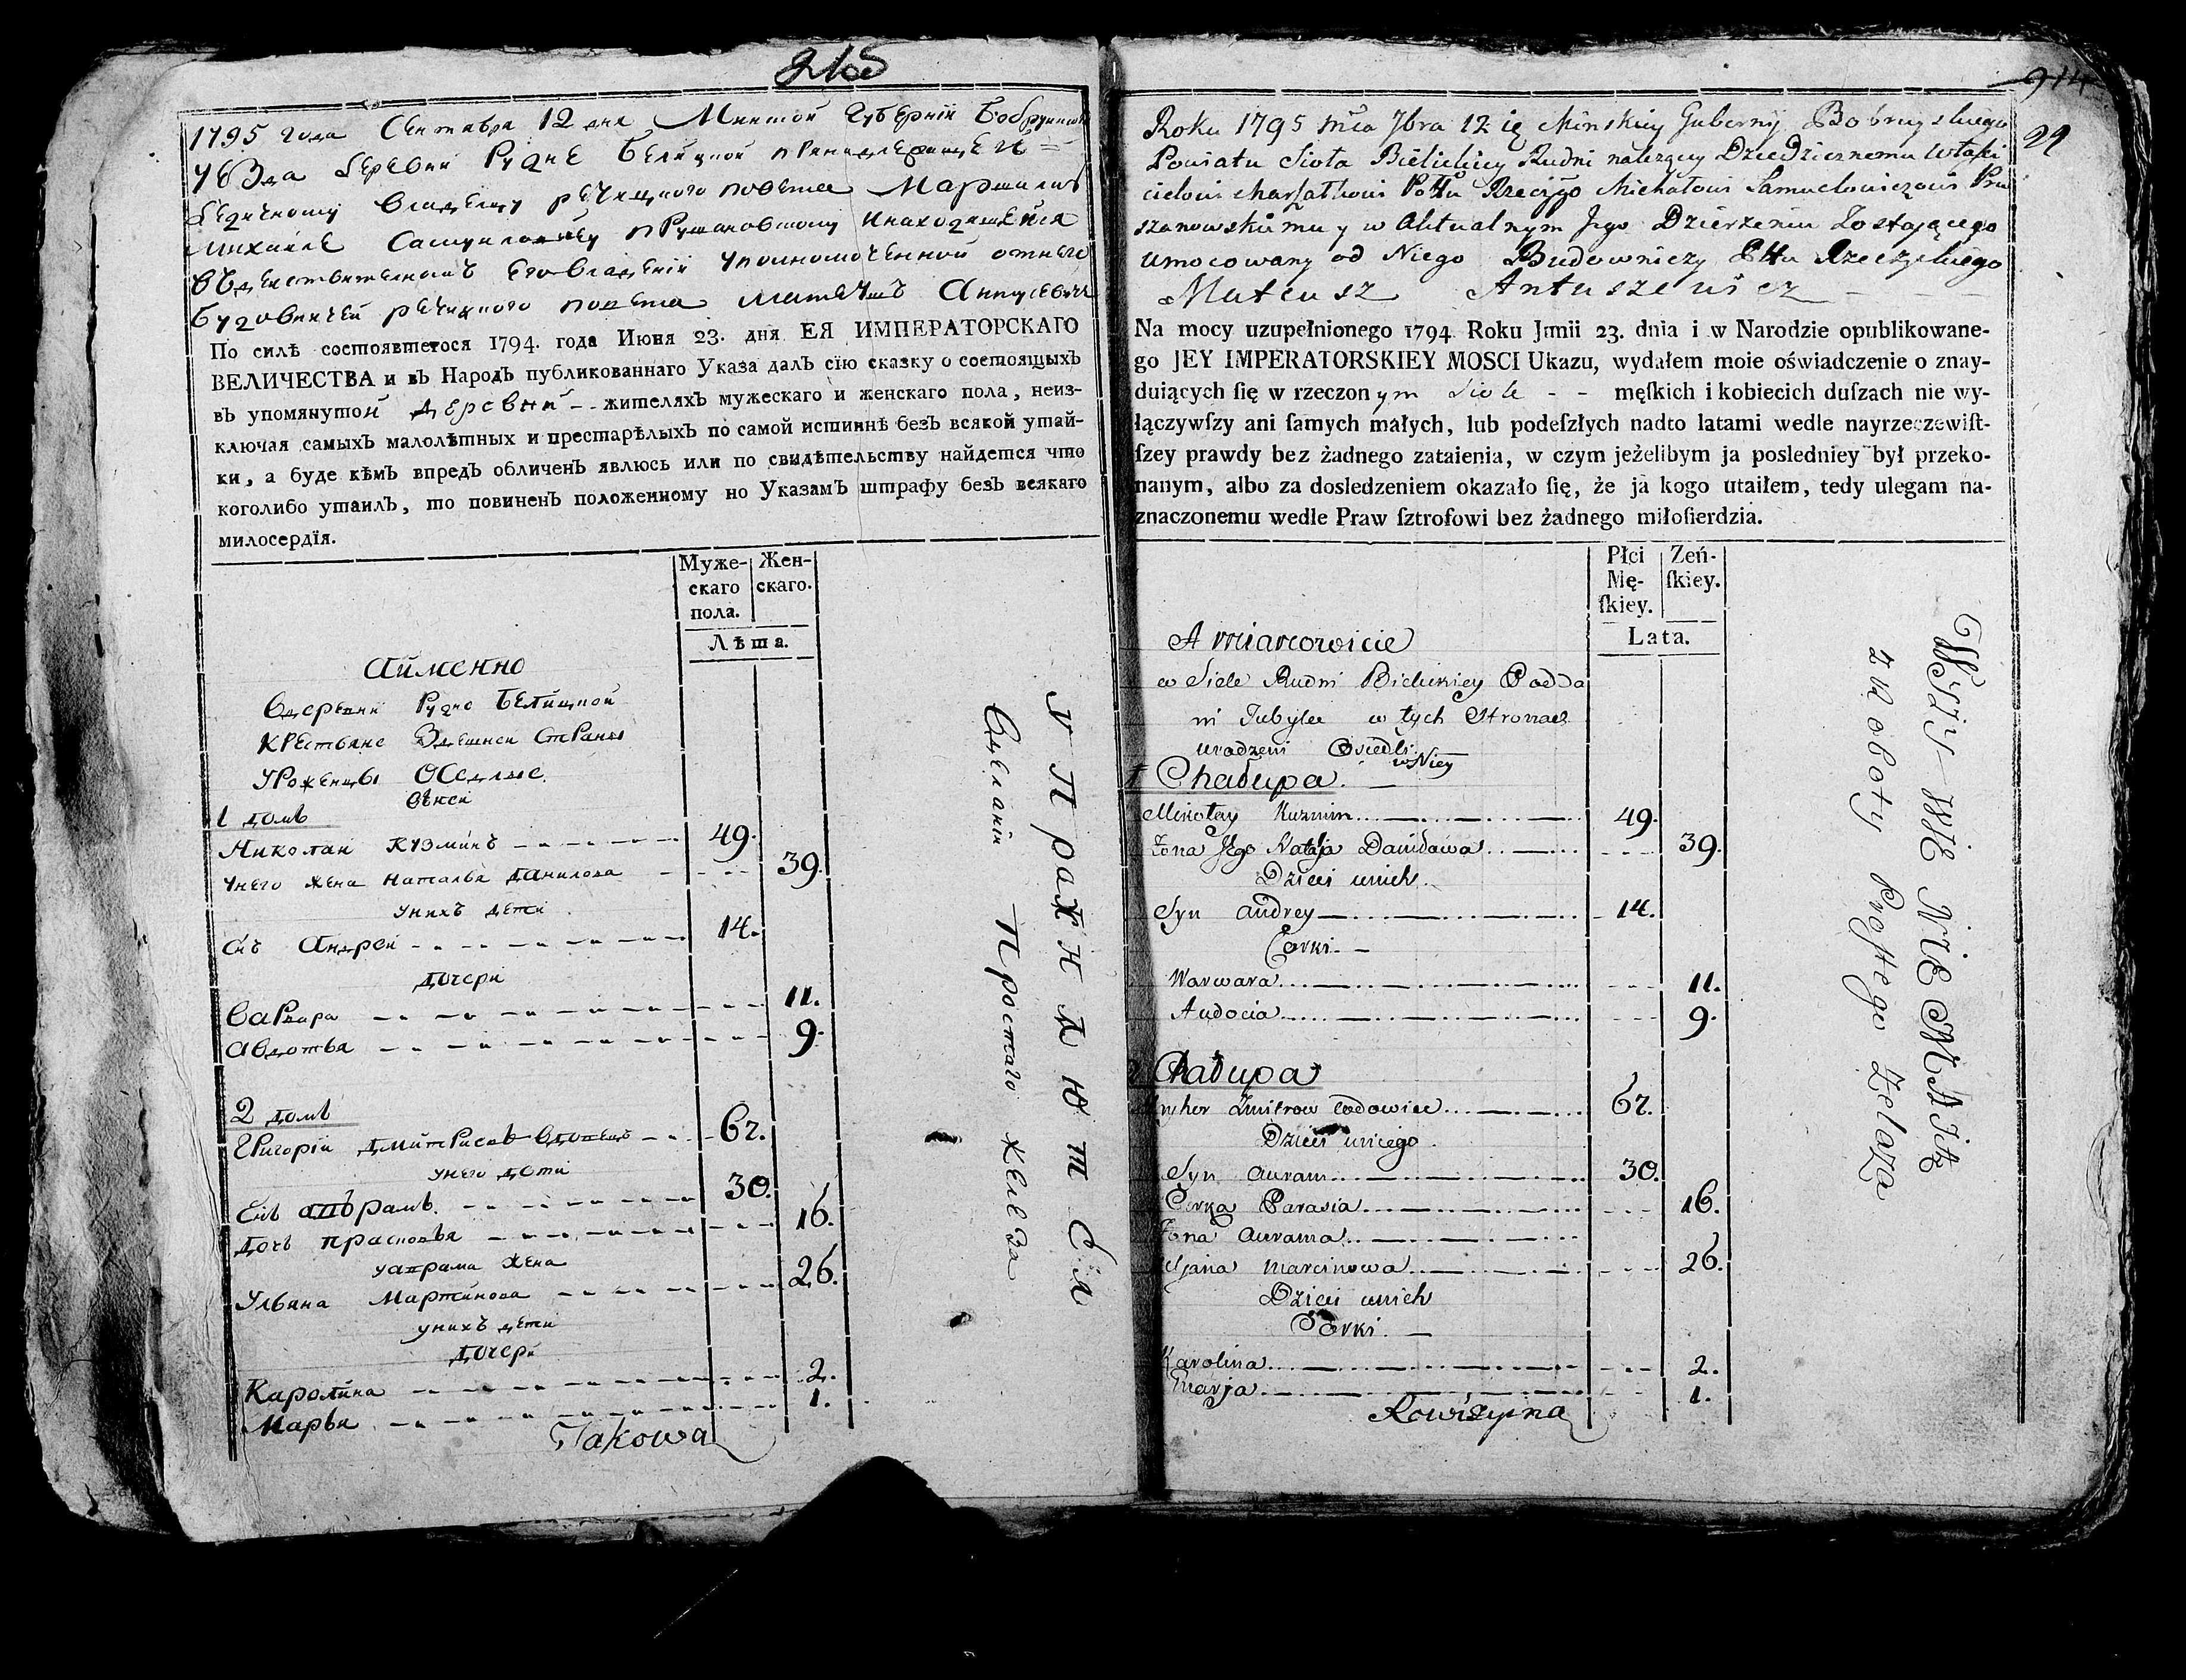 1795 года Сентября 12 дня Минской Губернїи Бобруйского
уезда деревни Рудне Белицкой принадлежащей
владельцу речицкого повета Маршалку
Михайле Самуиловичу Прушановскому и находящейся
в действительномъ его владении уполномоченной от него
Будовничей речицкого повета Матеушъ Антушевичъ
По силѣ состоявшегося 1794. года Июня 23. дня ЕЯ ИМПЕРАТОРСКАГО
ВЕЛИЧЕСТВА и въ Народъ публикованнаго Указа далъ сїю сказку о состоящыхъ
въ упомянутой деревни -- жителяхъ мужескаго и женскаго пола, неиз-
ключая самыхъ малолѣтныхъ и престарѣлыхъ по самой истиннѣ безъ всякой утай-
ки, а буде кѣмъ впредъ обличенъ явлюсь или по свидѣтельству найдется что
коголибо утаилъ, то повиненъ положенному по Указамъ штрафу безъ всякаго
милосердїя.
Муже-
скаго
пола.
Жен-
скаго.
Лѣта.
Аймено
Вдеревни Рудне Белицкой
крестьяне Здешней Страны
Уроженцы Оседлые
вней
1 домъ
Николай Кузминъ 49.
Унего жена Наталья Данилова 39.
Унихъ дети
Сынъ Андрей 14.
дочери
Варвара 11.
Авдотья 9.
2 домъ
Григорїй Дмитриевъ вдовецъ 67.
Унего дети
Сынъ Абрамъ 30.
Дочь Прасковья 16.
Уаврама жена
Ульяна Мартинова 26.
унихъ дети
дочери
Каролина 2.
Марья 1.
Takowa
Упражняются
Вделании Простаго железа
914
29
Roku 1795 Mca 7bra 12 Minskiey Gubernij Bobruyskiego
Powiatu Sioła Bielickiey Rudni należący Dziedzicznemu Właści
cielowi Marszałkowi Pottu Rzeczgo Michałowi Samuelowiczowi Pru
szanowskiemu y w Aktualnym Jego Dzierżeniu Zostającego
Umocowany od Niego Budowniczy Pttu Rzeczyckiego
Mateusz Antuszewicz
Na mocy uzupełnionego 1794 Roku Jmii 23. dnia i w Narodzie opublikowane-
go JEY IMPERATORSKIEY MOSCI Ukazu, wydałem moie oświadczenie o znay-
duiących ſię w rzeczonym Siole -- męſkich i kobiecich duſzach nie wy-
łączywſzy ani ſamych małych, lub podeſzłych nadto latami wedle nayrzeczewiſt-
ſzey prawdy bez żadnego zataienia, w czym jeżelibym ja posledniey był przeko-
nanym, albo za dosledzeniem okazało ſię, że ja kogo utaiłem, tedy ulegam na-
znaczonemu wedle Praw ſztrofowi bez żadnego miłoſierdzia.
Płci
Mę-
ſkiey.
Zeń-
ſkiey.
Lata.
A mianowicie
w Siele Rudni Bielickiey Podda
ni Tubylcy w tych Stronach
urodzeni Osiedli
w Niey
1 Chałupa.
Mikołay Kuzmin 49.
Żona Jego Natalja Daniłowa 39.
Dzieci unich
Syn Andrey 14.
Corki
Warwara 11.
Audocia 9.
2 Chałupa
Hryhor Zmitrow wdowiec 67.
Dzieci uniego
Syn Auram 30.
Corka Parasia 16.
Żona Aurama
Uljana Marcinowa 26.
Dzieci unich
Corki.
Karolina 2.
Marja 1.
Rowizyina
Wszywie Niemaię
z Roboty Prostego Zelaza